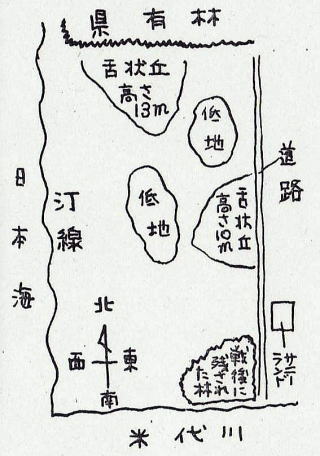 県有林
舌状丘
高さ
13m
低地
道路
低地
舌状丘
高さ10m
日本海
汀線
北
西 東
南
戦後に
残され
た林
サニー
ランド
米代川